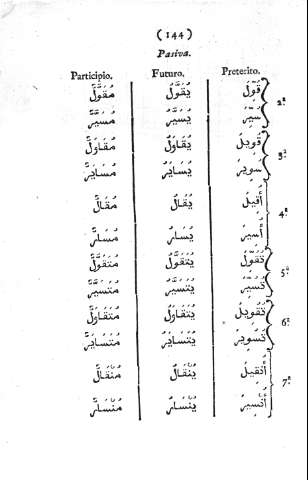 (144)
Pasiva.
Participio. Futuro. Preterito.
مُقَوَّلٌ يُقَوَّلُ قُوِّلَ 2.ª
مُسَيَّرٌ يُسَيَّرُ سُيِّرَ
مُقَاوَلٌ يُقَاوَلُ قُووِلَ 3.ª
مُسَايَرٌ يُسَايَرُ سُويِرَ
مُقَالٌ يُقَالُ أُقِيلَ 4.ª
مُسَارٌ يُسَارُ أُسِيرَ
مُتَقَوَّلٌ يُتَقَوَّلُ تُقُوِّلَ 5.ª
مُتَسَيَّرٌ يُتَسَيَّرُ تُسُيِّرَ
مُتَقَاوَلٌ يُتَقَاوَلُ تُقُووِلَ 6.ª
مُتَسَايَرٌ يُتَسَايَرُ تُسُويِرَ
مُنْقَالٌ يُنْقَالُ أُنْقِيلَ 7.ª
مُنْسَارٌ يُنْسَارُ أُنْسِيرَ